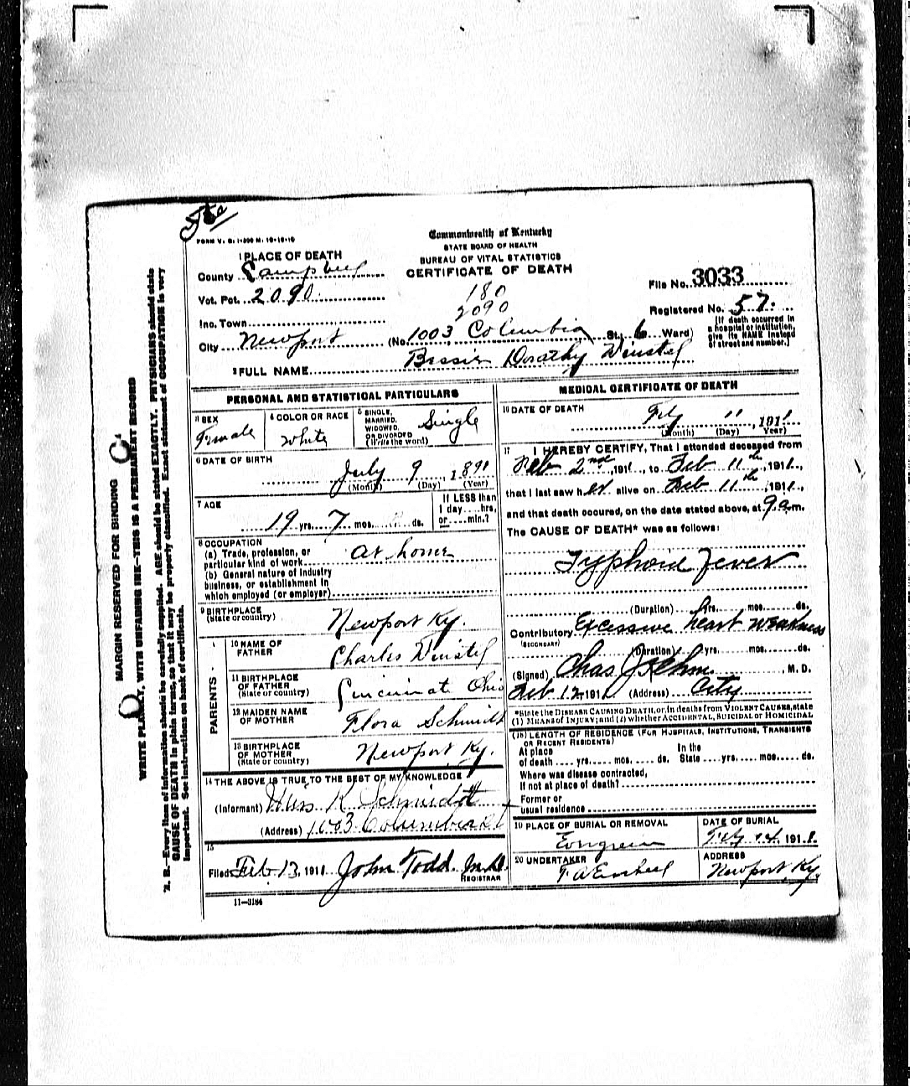 FORM V. S. 1-300 M. 12-19-10
Commonwealth of Kentucky
STATE BOARD OF HEALTH
BUREAU OF VITAL STATISTICS
CERTIFICATE OF DEATH
1 PLACE OF DEATH
County Campbell
Vot. Pct. 2090
180
2090
File No. 3033
Registered No. 57.
Inc. Town
City Newport (No. 1003 Columbia St.; 6 Ward)
(If death occurred in a hospital or institution, give its NAME instead of street and number.)
2 FULL NAME Dorathy
PERSONAL AND STATISTICAL PARTICULARS
3 SEX Female
4 COLOR OR RACE White
5 SINGLE, MARRIED, WIDOWED, OR DIVORCED (Write the word) Single
6 DATE OF BIRTH July 9, 1891
(Month) (Day) (Year)
7 AGE 19 yrs. 7 mos. ds.
If LESS than 1 day....hrs, or....min.?
8 OCCUPATION
(a) Trade, profession, or particular kind of work At home
(b) General nature of industry
business, or establishment in
which employed (or employer)
9 BIRTHPLACE
(State or country) Newport Ky.
PARENTS
10 NAME OF
FATHER Charles
11 BIRTHPLACE
OF FATHER
(State or country) Cincinnati Ohio
12 MAIDEN NAME
OF MOTHER Flora Schmidt
13 BIRTHPLACE
OF MOTHER
(State or country) Newport, Ky.
14 THE ABOVE IS TRUE TO THE BEST OF MY KNOWLEDGE
(Informant) Miss K Schmidt
(Address) 1003 Columbia St
15
Filed Feb 13, 1911 John Todd M.D.
REGISTRAR
11-3184
MEDICAL CERTIFICATE OF DEATH
16 DATE OF DEATH
11, 1911
(Month) (Day) Year)
17 I HEREBY CERTIFY, That I attended deceased from
Feb 2nd, 1911, to Feb 11th, 1911,
that I last saw her alive on Feb 11th, 1911,
and that death occured, on the date stated above, at 9 a.m.
The CAUSE OF DEATH* was as follows:
Typhoid Fever
(Duration) yrs. mos. ds.
Contributory Excessive heart weakness
(SECONDARY)
(Duration) yrs. mos. ds.
(Signed) Chas J M. D.
Feb 12 1911 (Address) City
*State the DISEASE CAUSING DEATH, or, in deaths from VIOLENT CAUSES, state
(1) MEANS OF INJURY; and (2) whether ACCIDENTAL, SUICIDAL or HOMICIDAL
(18) LENGTH OF RESIDENCE (FOR HOSPITALS, INSTITUTIONS, TRANSIENTS
OR RECENT RESIDENTS)
At place In the
of death....yrs....mos....ds. State....yrs....mos....ds.
Where was disease contracted,
If not at place of death?
Former or
usual residence
19 PLACE OF BURIAL OR REMOVAL
Evergreen
DATE OF BURIAL
14 1911.
20 UNDERTAKER
ADDRESS
Newport Ky.
MARGIN RESERVED FOR BINDING
WRITE PLAINLY, WITH UNFADING INK—THIS IS A PERMANENT RECORD
N. B.—Every item of information should be carefully supplied. AGE should be stated EXACTLY. PHYSICIANS should state
CAUSE OF DEATH in plain terms, so that it may be properly classified. Exact statement of OCCUPATION is very
important. See instructions on back of certificate.